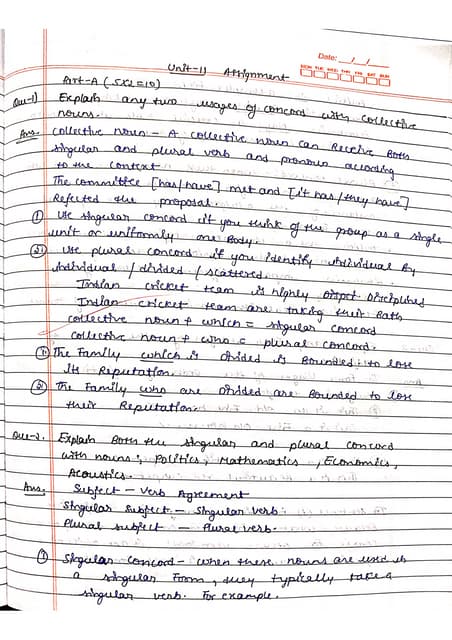 Date: __/__/__
MON TUE WED THU FRI SAT SUN
Unit-II Assignment
Part-A (5x2=10)
Que-1) Explain any two usages of concord with collective
nouns.
Ans. Collective Noun - A collective noun can Receive Both
singular and plural verb and pronoun according
to the context.
The committee [has/have] met and [it has/they have]
Rejected the proposal.
① Use singular concord if you think of the group as a single
unit or uniformly one Body.
② Use plural concord if you identify individual By
individual / divided / scattered.
Indian cricket team is highly Disciplined
Indian cricket team are taking their Bath
collective noun + which = singular concord
collective noun + who = plural concord.
① The Family which is divided is Bounded to lose
its Reputation.
② The Family who are divided are Bounded to lose
their Reputation.
Que-2. Explain Both the singular and plural concord
with nouns: Politics, Mathematics, Economics,
Acoustics.
Ans. Subject - verb Agreement
Singular Subject - Singular verb.
Plural subject - Plural verb.
① Singular concord - when these nouns are used in
a singular form, they typically take a
singular verb. For example.